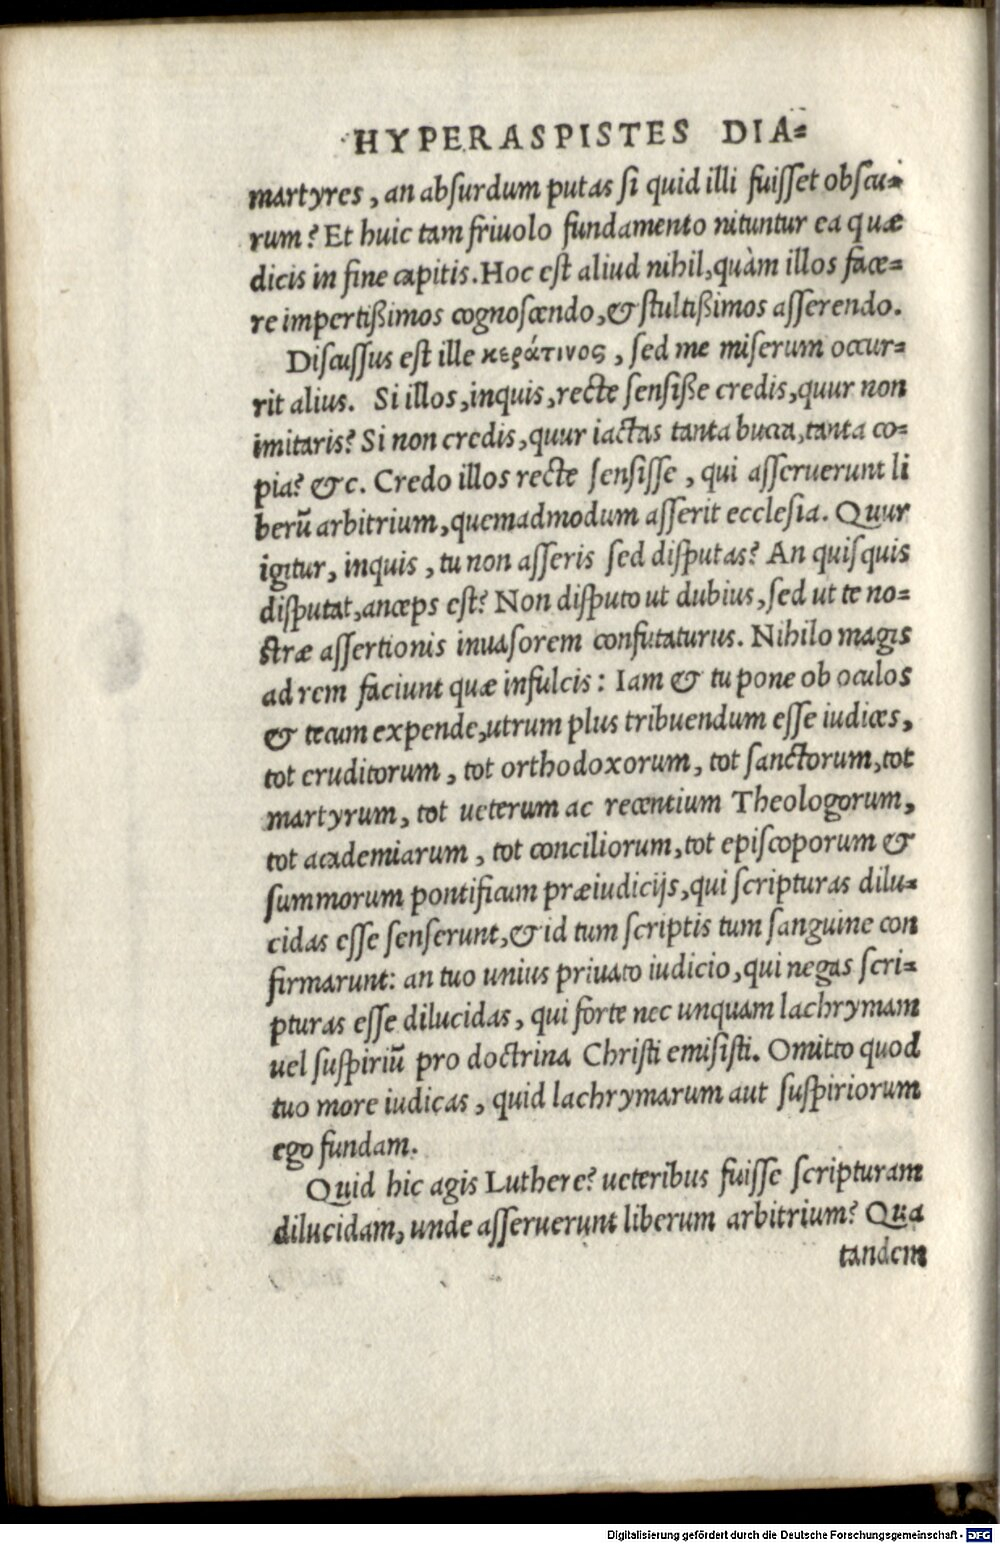 HYPERASPISTES DIA=
martyres, an absurdum putas si quid illi fuisset obscu=
rum? Et huic tam friuolo fundamento nituntur ea quæ
dicis in fine capitis. Hoc est aliud nihil, quàm illos face=
re impertißimos cognoscendo, & stultißimos asserendo.
Discussus est ille κεράτινος, sed me miserum occur=
rit alius. Si illos, inquis, recte sensiße credis, quur non
imitaris? Si non credis, quur iactas tanta bucca, tanta co=
pia? &c. Credo illos recte sensisse, qui asseruerunt li
berũ arbitrium, quemadmodum asserit ecclesia. Quur
igitur, inquis, tu non asseris sed disputas? An quisquis
disputat, anceps est? Non disputo ut dubius, sed ut te no=
stræ assertionis inuasorem confutaturus. Nihilo magis
ad rem faciunt quæ infulcis: Iam & tu pone ob oculos
& tecum expende, utrum plus tribuendum esse iudices,
tot eruditorum, tot orthodoxorum, tot sanctorum, tot
martyrum, tot ueterum ac recentium Theologorum,
tot academiarum, tot conciliorum, tot episcoporum &
summorum pontificum præiudicijs, qui scripturas dilu=
cidas esse senserunt, & id tum scriptis tum sanguine con
firmarunt: an tuo unius priuato iudicio, qui negas scri=
pturas esse dilucidas, qui forte nec unquam lachrymam
uel suspiriũ pro doctrina Christi emisisti. Omitto quod
tuo more iudicas, quid lachrymarum aut suspiriorum
ego fundam.
Quid hic agis Luthere? ueteribus fuisse scripturam
dilucidam, unde asseruerunt liberum arbitrium? Qua
tandem
Digitalisierung gefördert durch die Deutsche Forschungsgemeinschaft - DFG